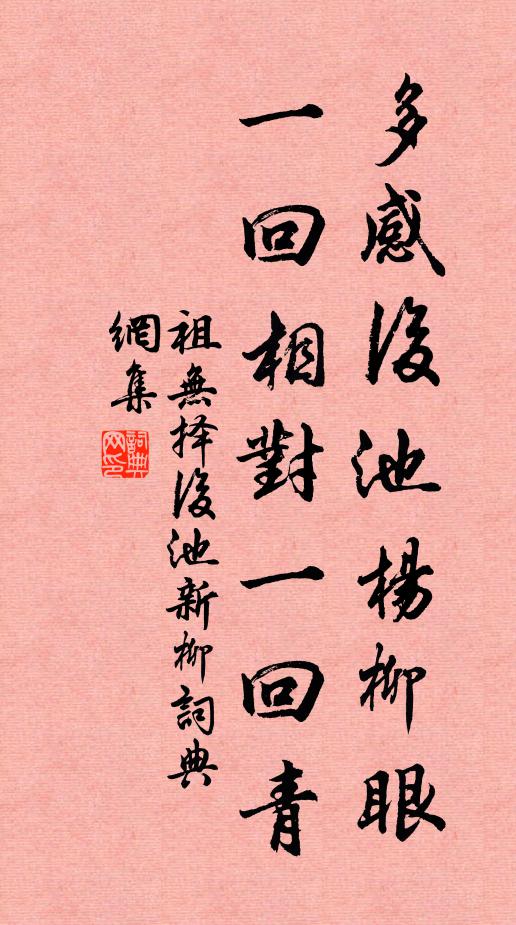 多感後池楊柳眼
一回相對一回青
祖無择後池新柳詞典
網集
詞典
网印